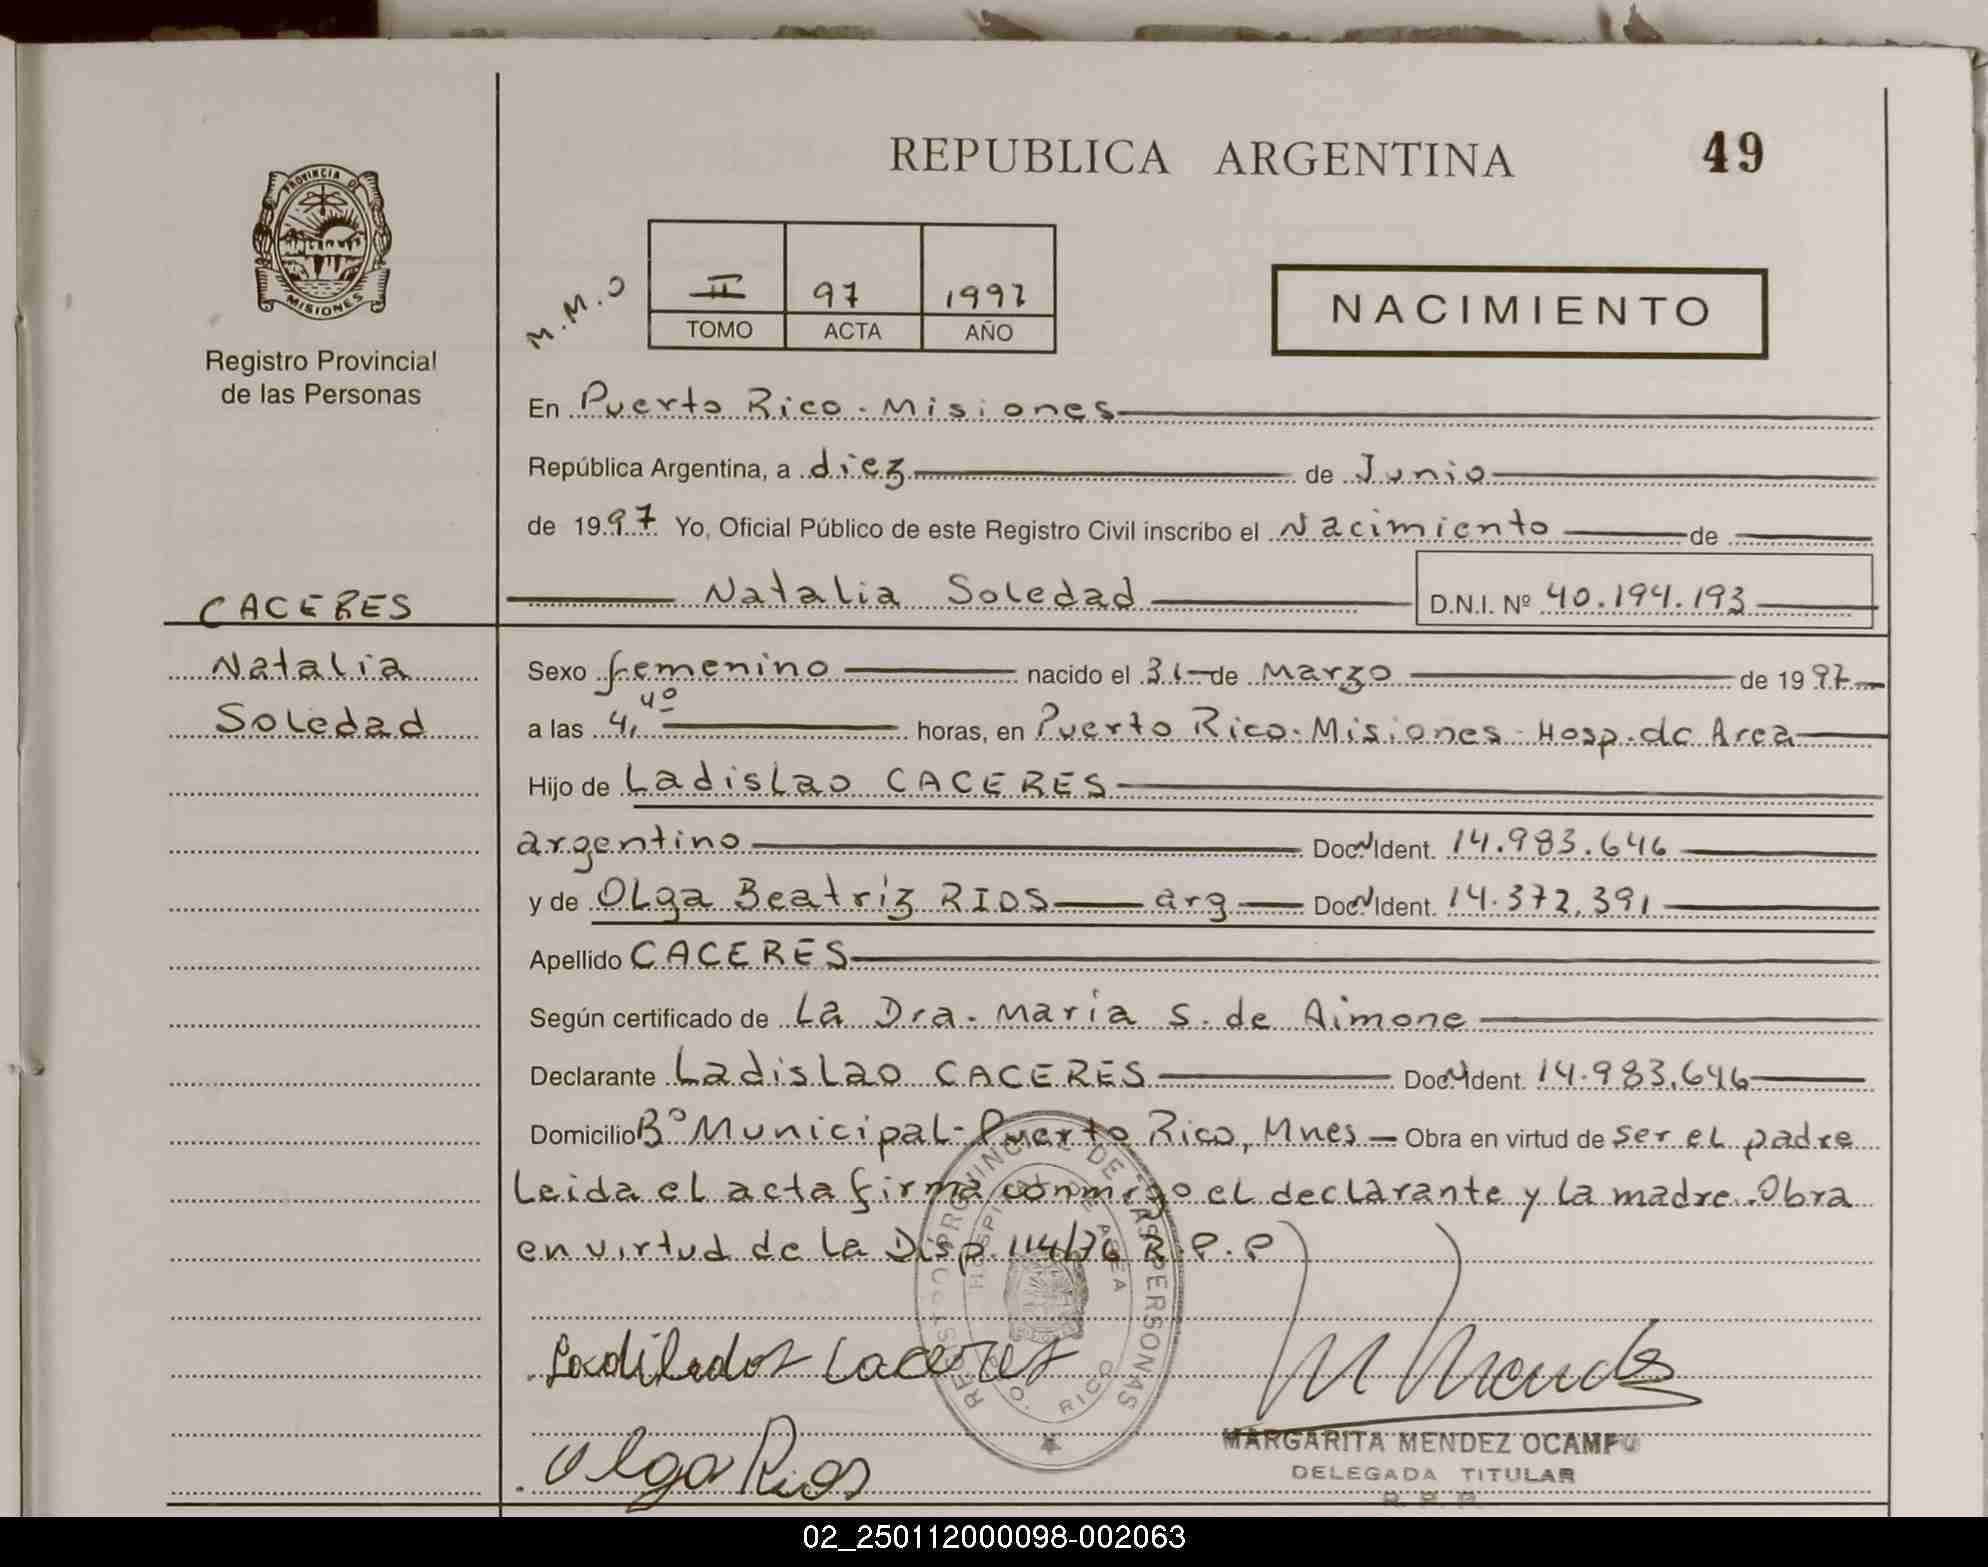 REPUBLICA ARGENTINA
49
PROVINCIA DE
MISIONES
Registro Provincial
de las Personas
M.M.O
II 97 1997
TOMO ACTA AÑO
NACIMIENTO
En Puerto Rico - Misiones
República Argentina, a diez de Junio
de 1997 Yo, Oficial Público de este Registro Civil inscribo el Nacimiento de
Natalia Soledad D.N.I. Nº 40.194.193
CACERES
Natalia
Soledad
Sexo femenino nacido el 31 de Marzo de 1997
a las 4,40 horas, en Puerto Rico - Misiones - Hosp. de Area
Hijo de Ladislao CACERES
argentino Doc. Ident. 14.983.646
y de Olga Beatriz RIOS arg Doc. Ident. 14.372.391
Apellido CACERES
Según certificado de La Dra. Maria S. de Aimone
Declarante Ladislao CACERES Doc. Ident. 14.983.646
Domicilio Bº Municipal - Puerto Rico, Mnes - Obra en virtud de ser el padre
Leida el acta firma conmigo el declarante y la madre. Obra
en virtud de la Disp. 114/76 R.P.P
REGISTRO PROVINCIAL DE LAS PERSONAS
HOSPITAL DE AREA
PTO. RICO
Caceres
Olga Rios
M Mendez
MARGARITA MENDEZ OCAMPO
DELEGADA TITULAR
R. P. P.
02_250112000098-002063